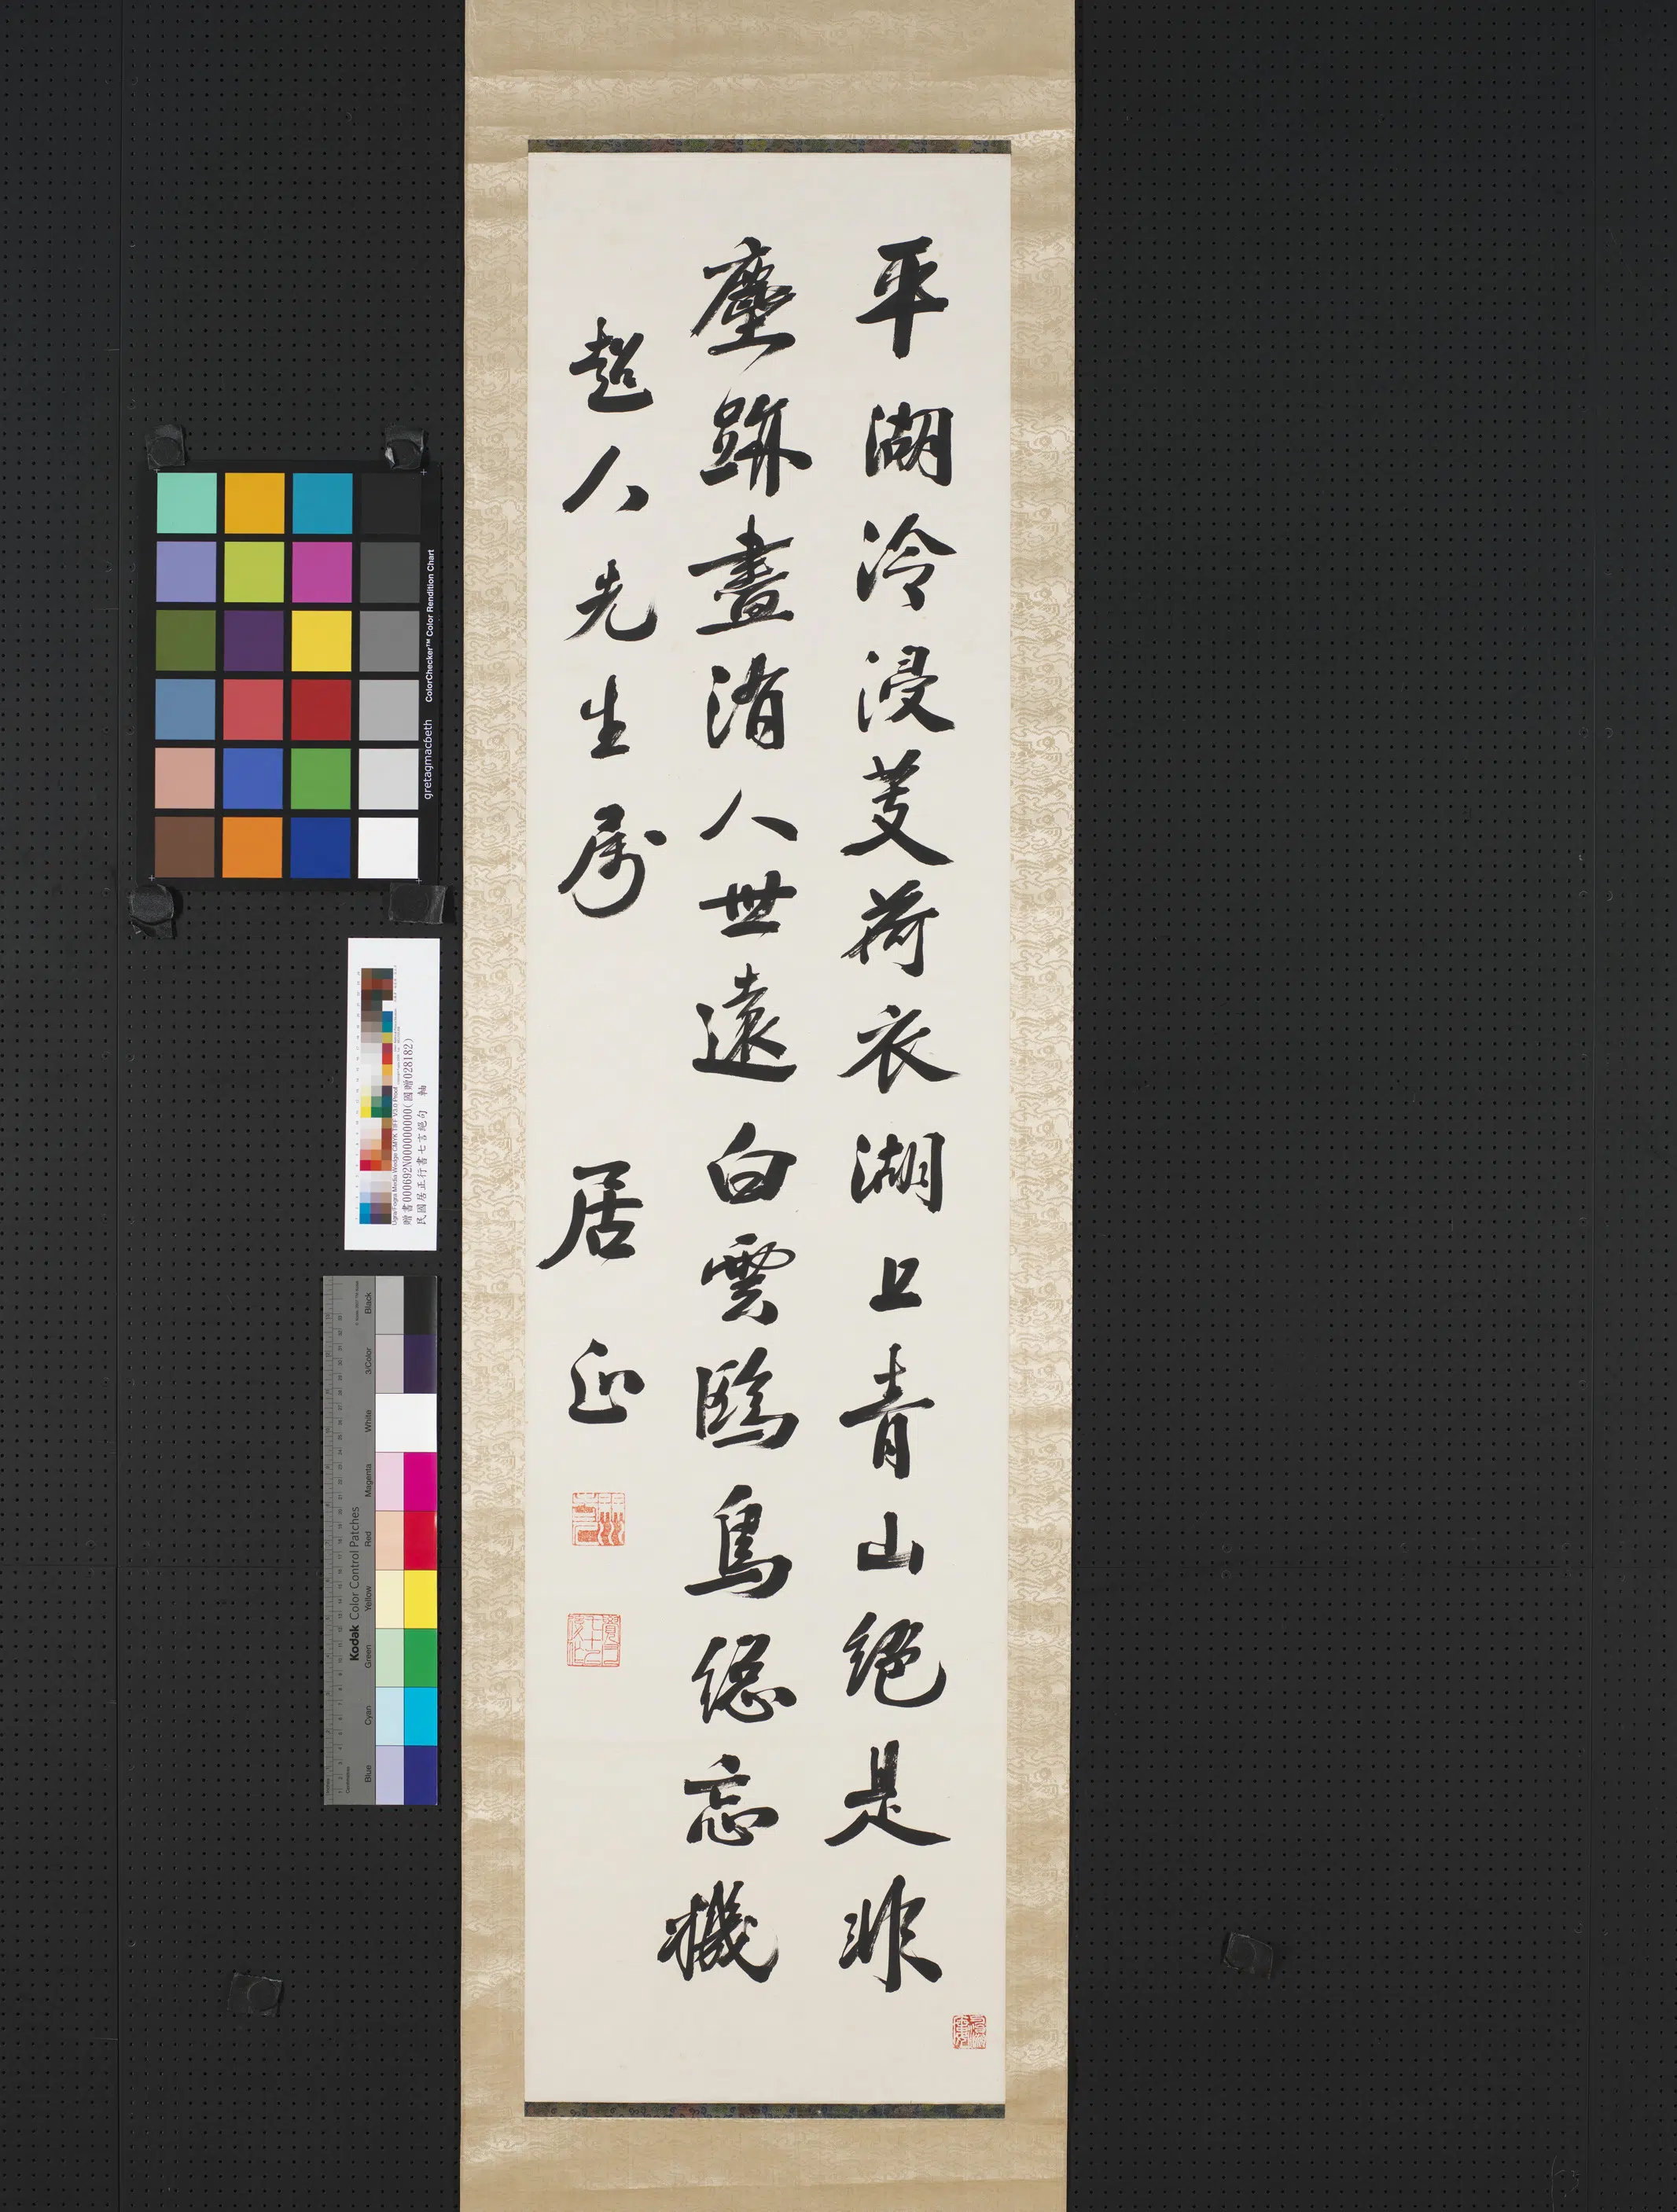 平湖冷浸芰荷衣湖上青山絕是非
塵跡盡消人世遠白雲鷗鳥總忘機
超人先生屬
居正
ColorChecker™ Color Rendition Chart
gretagmacbeth
Ugra/Fogra Media Wedge CMYK TIFF V3.0 Proof
贈書000692N000000000(國贈028182)
民國居正行書七言絕句 軸
Kodak Color Control Patches
Blue Cyan Green Yellow Red Magenta White 3/Color Black